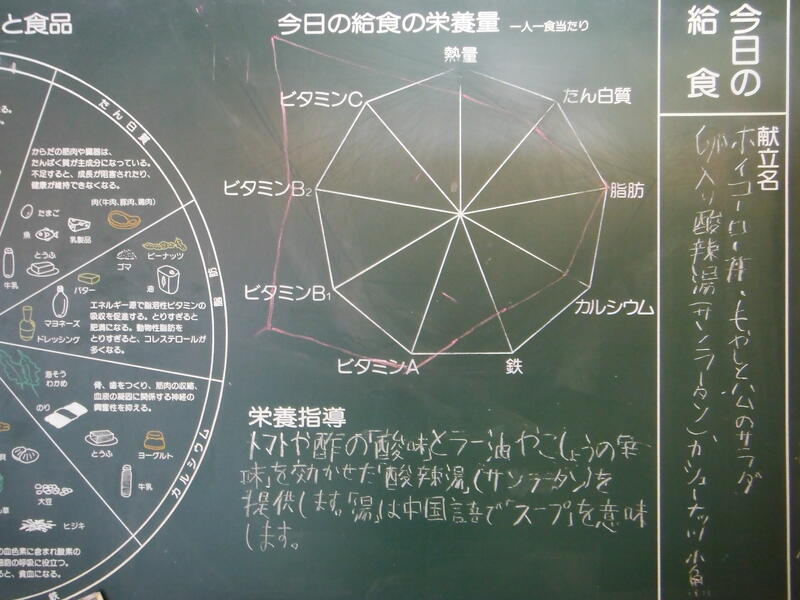 今日の給食
献立名
ホイコーロー丼・もやしとハムのサラダ
卵入り酸辣湯(サンラータン)、カシューナッツ小魚
今日の給食の栄養量 一人一食当たり
熱量
たん白質
脂肪
カルシウム
鉄
ビタミンA
ビタミンB₁
ビタミンB₂
ビタミンC
栄養指導
トマトや酢の「酸味」とラー油やこしょうの辛
味」を効かせた「酸辣湯」(サンラータン)を
提供します。「湯」は中国語で「スープ」を意味
します。
と食品
たん白質
からだの筋肉や臓器は、
たんぱく質が主成分になっている。
不足すると、成長が阻害されたり、
健康が維持できなくなる。
肉(牛肉、豚肉、鶏肉)
たまご
魚
乳製品
とうふ
牛乳
脂肪
ピーナッツ
ゴマ
油
バター
マヨネーズ
ドレッシング
エネルギー源で脂溶性ビタミンの
吸収を促進する。とりすぎると
肥満になる。動物性脂肪を
とりすぎると、コレステロールが
多くなる。
カルシウム
骨、歯をつくり、筋肉の収縮、
血液の凝固に関係する神経の
興奮性を抑える。
海そう
わかめ
のり
とうふ
ヨーグルト
牛乳
大豆
ヒジキ
の血色素に含まれ酸素の
細胞の呼吸に役立つ。
ると、貧血になる。
鉄